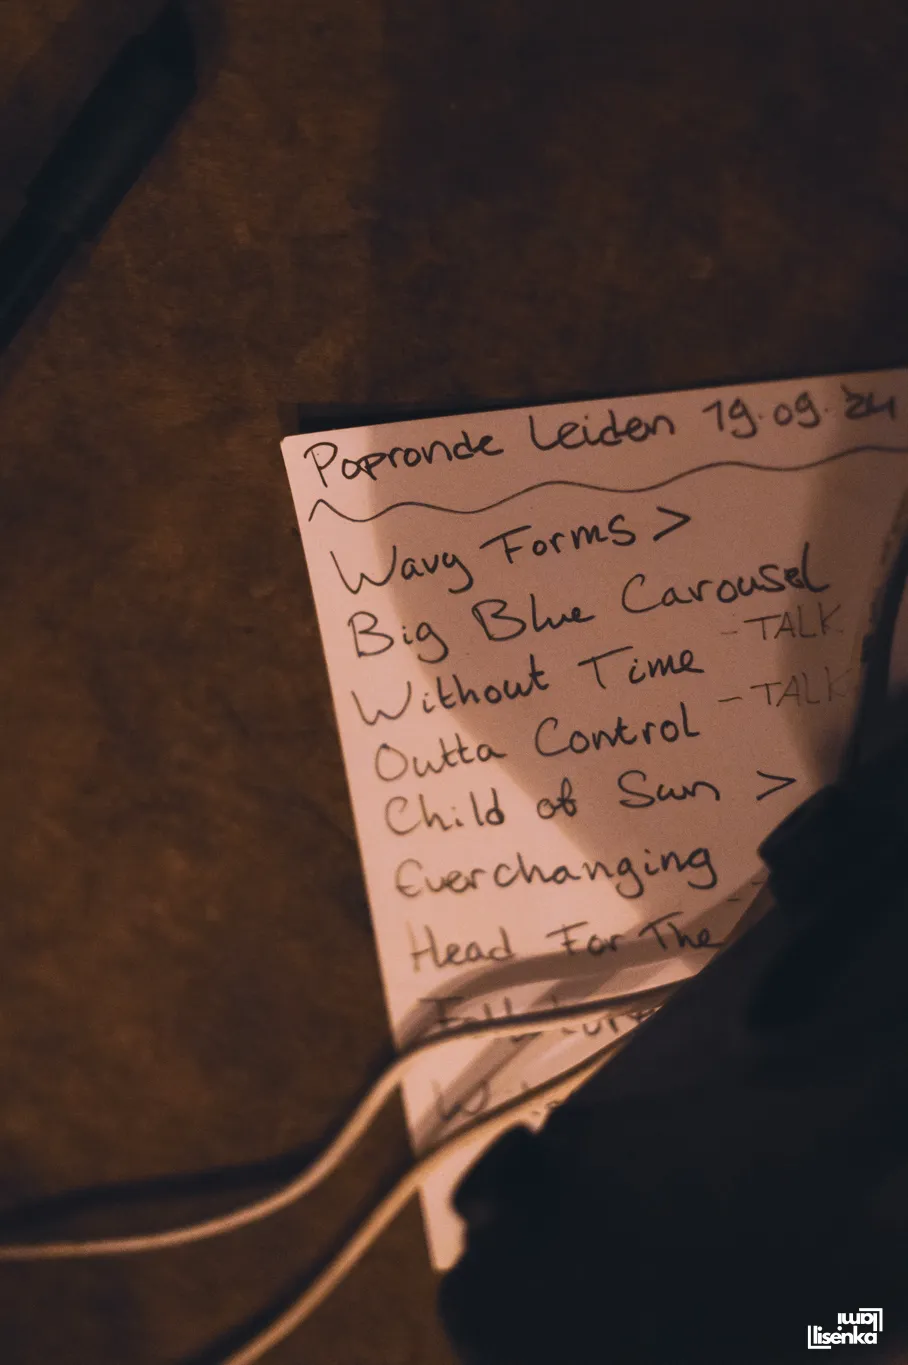 Popronde Leiden 19.09.24
Wavy Forms >
Big Blue Carousel
Without Time - TALK
Outta Control - TALK
Child of Sun >
Everchanging
Head For The
lisenka